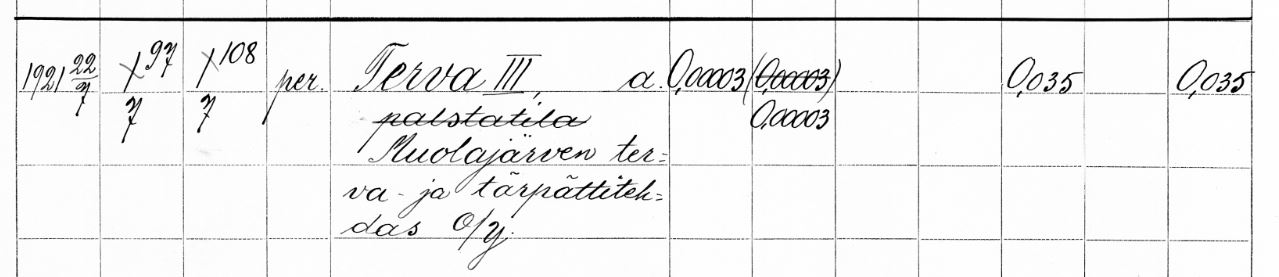 1921 22/7 X 97 X 108 per. Terva III, a. 0,00003 (0,00003) 0,035 0,035
7 7 palstatila 0,00003
Kuolajärven ter=
va- ja tärpättiteh=
das O/y.